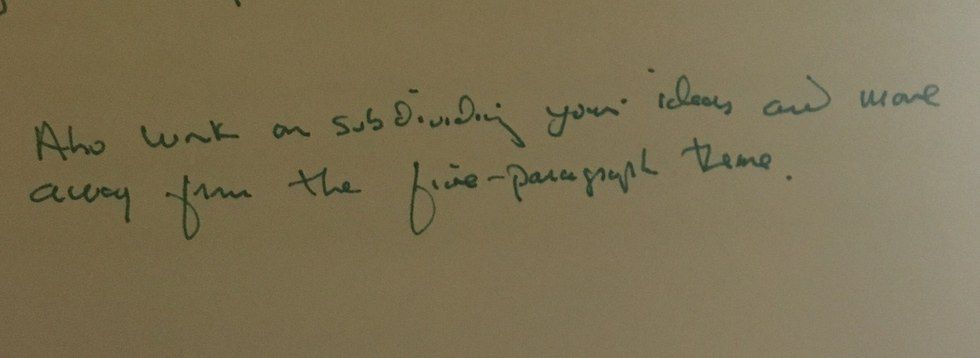 Also work on subdividing your ideas and move
away from the five-paragraph theme.